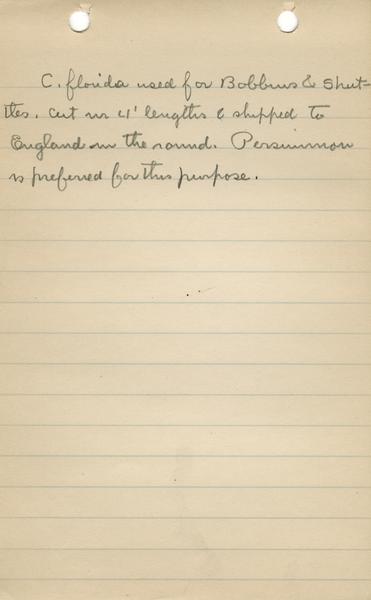 C. florida used for Bobbins & Shut-
tles. Cut in 4' lengths & shipped to
England in the round. Persimmon
is preferred for this purpose.